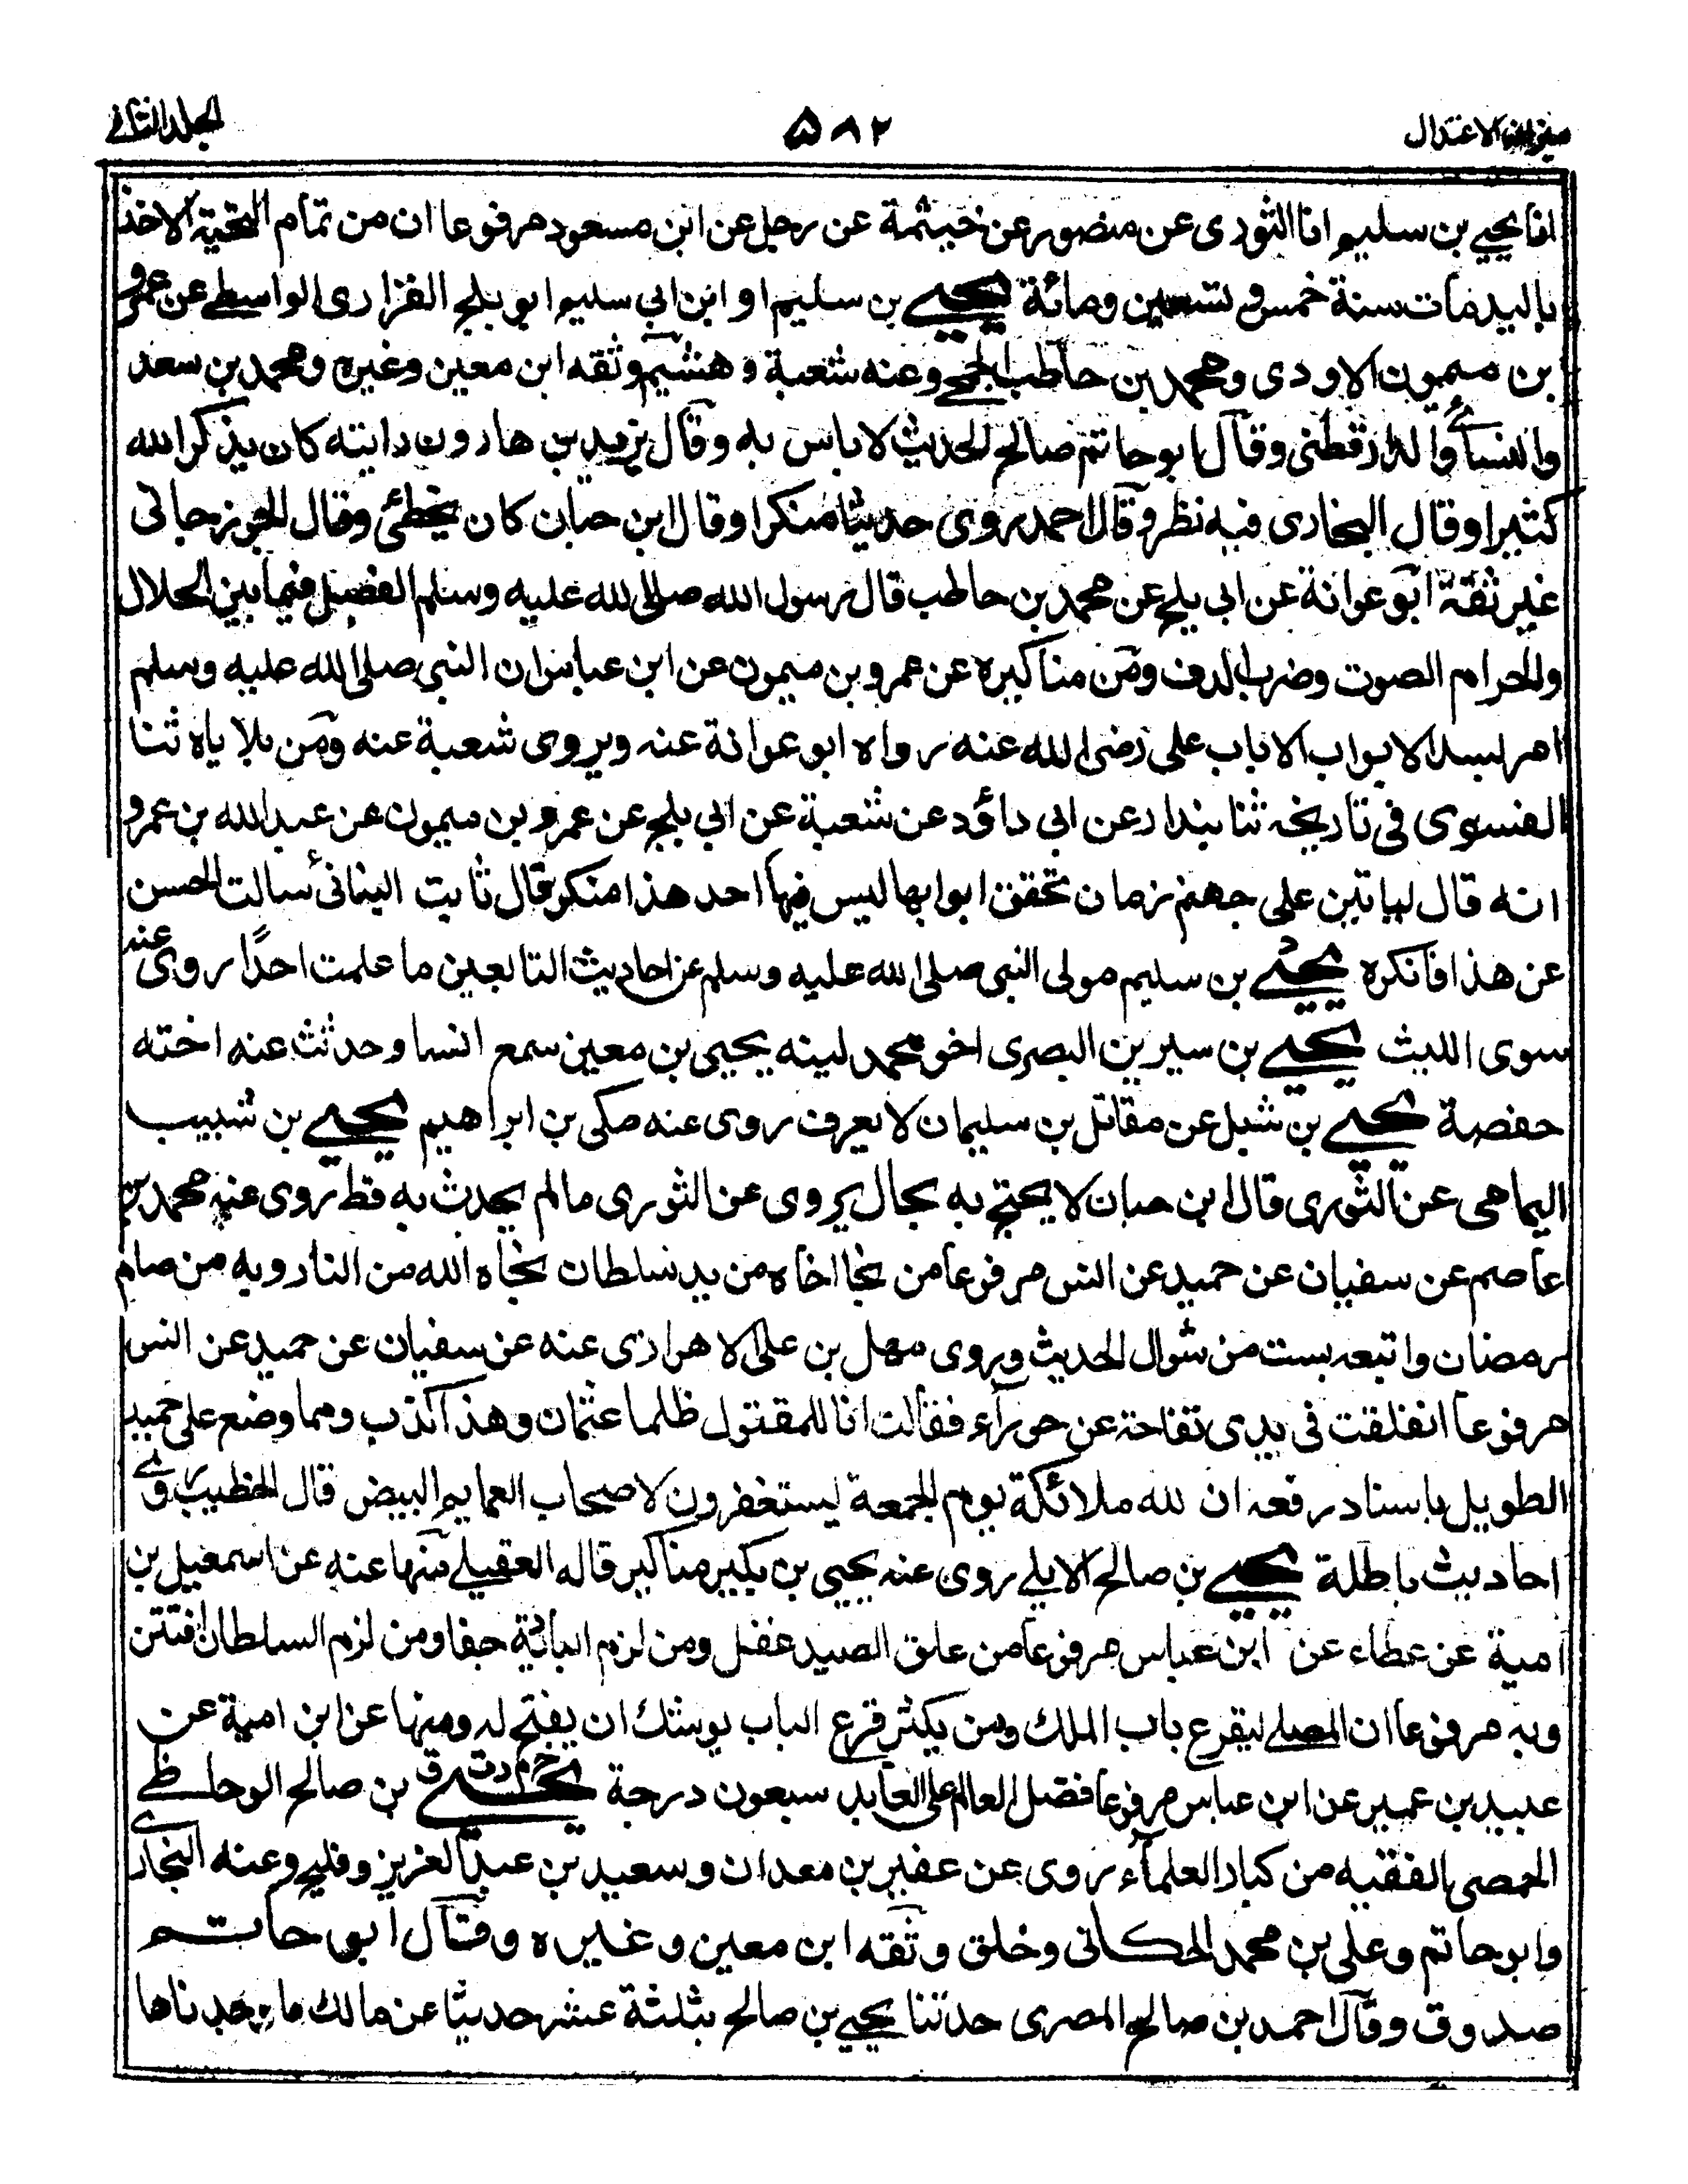 ميزان الاعتدال ٥٨٢ الجلد الثاني
انا يحيي بن سليم انا الثوري عن منصور عن خيثمة عن رجل عن ابن مسعود مرفوعا ان من تمام التحية الاخذ
باليد مات سنة خمس وتسعين ومائة يحيي بن سليم او ابن ابي سليم ابو بلج الفزاري الواسطي عن عمرو
بن ميمون الاودي ومحمد بن حاطب الجمحي وعنه شعبة وهشيم وثقه ابن معين وغيره ومحمد بن سعد
والنسائي والدارقطني وقال ابو حاتم صالح الحديث لا باس به وقال يزيد بن هارون رايته كان يذكر الله
كثيرا وقال البخاري فيه نظر وقال احمد روى حديثا منكرا وقال ابن حبان كان يخطئ وقال الجوزجاني
غير ثقة ابو عوانة عن ابي بلج عن محمد بن حاطب قال رسول الله صلى الله عليه وسلم الفصل فيما بين الحلال
والحرام الصوت وضرب الدف ومن مناكيره عن عمرو بن ميمون عن ابن عباس ان النبي صلى الله عليه وسلم
امر بسد الابواب الا باب علي رضي الله عنه رواه ابو عوانة عنه ويروى شعبة عنه ومن بلاياه ثنا
الفسوي في تاريخه ثنا بندار عن ابي داؤد عن شعبة عن ابي بلج عن عمرو بن ميمون عن عبد الله بن عمرو
انه قال لياتين على جهنم زمان تخفق ابوابها ليس فيها احد هذا منكر قال ثابت البناني سالت الحسن
عن هذا فانكره يحيي بن سليم مولى النبي صلى الله عليه وسلم عن احاديث التابعين ما علمت احدًا روى عنه
سوى الليث يحيي بن سيرين البصري اخو محمد لينه يحيى بن معين سمع انسا وحدثت عنه اخته
حفصة يحيي بن شبل عن مقاتل بن سليمان لا يعرف روى عنه مكي بن ابراهيم يحيي بن شبيب
اليمامي عن الثوري قال ابن حبان لا يحتج به بحال يروى عن الثوري مالم يحدث به قط روى عنه محمد بن
عاصم عن سفيان عن حميد عن انس مرفوعا من نجا اخاه من يد سلطان نجاه الله من النار وبه من صام
رمضان واتبعه بست من شوال الحديث وروى مهل بن علي الاهوازي عنه عن سفيان عن حميد عن انس
مرفوعا انفلقت في يدي تفاحة عن حوراء فقالت انا للمقتول ظلما عثمان وهذا كذب ومما وضع على حميد
الطويل باسناد رفعه ان لله ملائكة يوم الجمعة يستغفرون لاصحاب العمايم البيض قال الخطيب روى
احاديث باطلة يحيي بن صالح الايلي روى عنه يحيى بن بكير مناكير قاله العقيلي منها عنه عن اسمعيل بن
امية عن عطاء عن ابن عباس مرفوعا من علق الصيد غفل ومن لزم البادية جفا ومن لزم السلطان افتتن
وبه مرفوعا ان المصلي ليقرع باب الملك ومن يكثر قرع الباب يوشك ان يفتح له ومنها عن ابن امية عن
عبيد بن عمير عن ابن عباس مرفوعا فضل العالم على العابد سبعون درجة يحيي خ م د ت ق بن صالح الوحاظي
الحمصي الفقيه من كبار العلماء روى عن عفير بن معدان وسعيد بن عبد العزيز وفليح وعنه البخاري
وابو حاتم وعلي بن محمد الحكاني وخلق وثقه ابن معين وغيره وقال ابو حاتم
صدوق وقال احمد بن صالح المصري حدثنا يحيي بن صالح بثلثة عشر حديثا عن مالك ما وجدناها